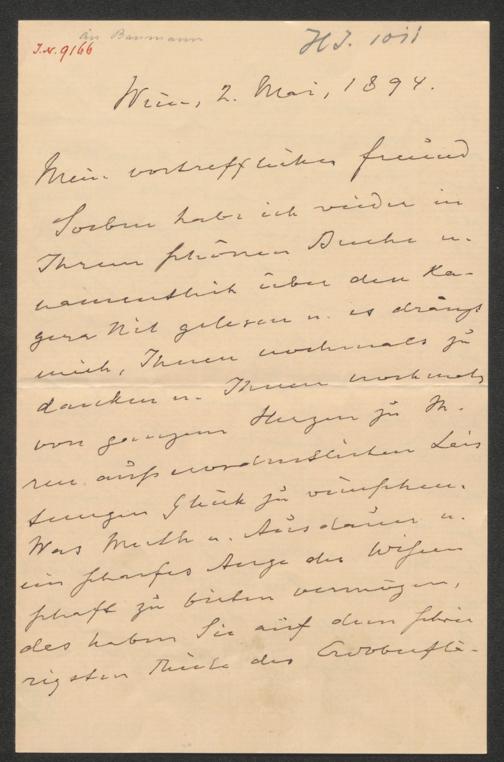 an Baumann
I.N. 9166
Wien, 2. Mai, 1894.
Mein vortrefflicher Freund
Soeben habe ich wieder in
Ihrem schönen Buche u.
namentlich über den Ka-
gera Nil gelesen u. es drängt
mich, Ihnen nochmals zu
danken u. Ihnen nochmals
von ganzem Herzen zu Ih-
ren außerordentlichen Leis
tungen Glück zu wünschen.
Was Muth u. Ausdauer u.
ein scharfes Auge der Wissen
schaft zu bieten vermögen,
das haben Sie auf dem schwie
rigsten Theile der Erdoberflä-